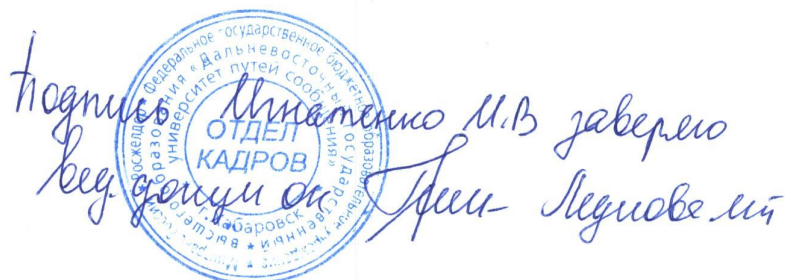 Подпись Игнатенко И.В заверяю
вед. докум ОК
Министерство
Росжелдор Федеральное государственное бюджетное образовательное учреждение
высшего образования «Дальневосточный государственный
университет путей сообщения»
ОТДЕЛ
КАДРОВ
г.Хабаровск